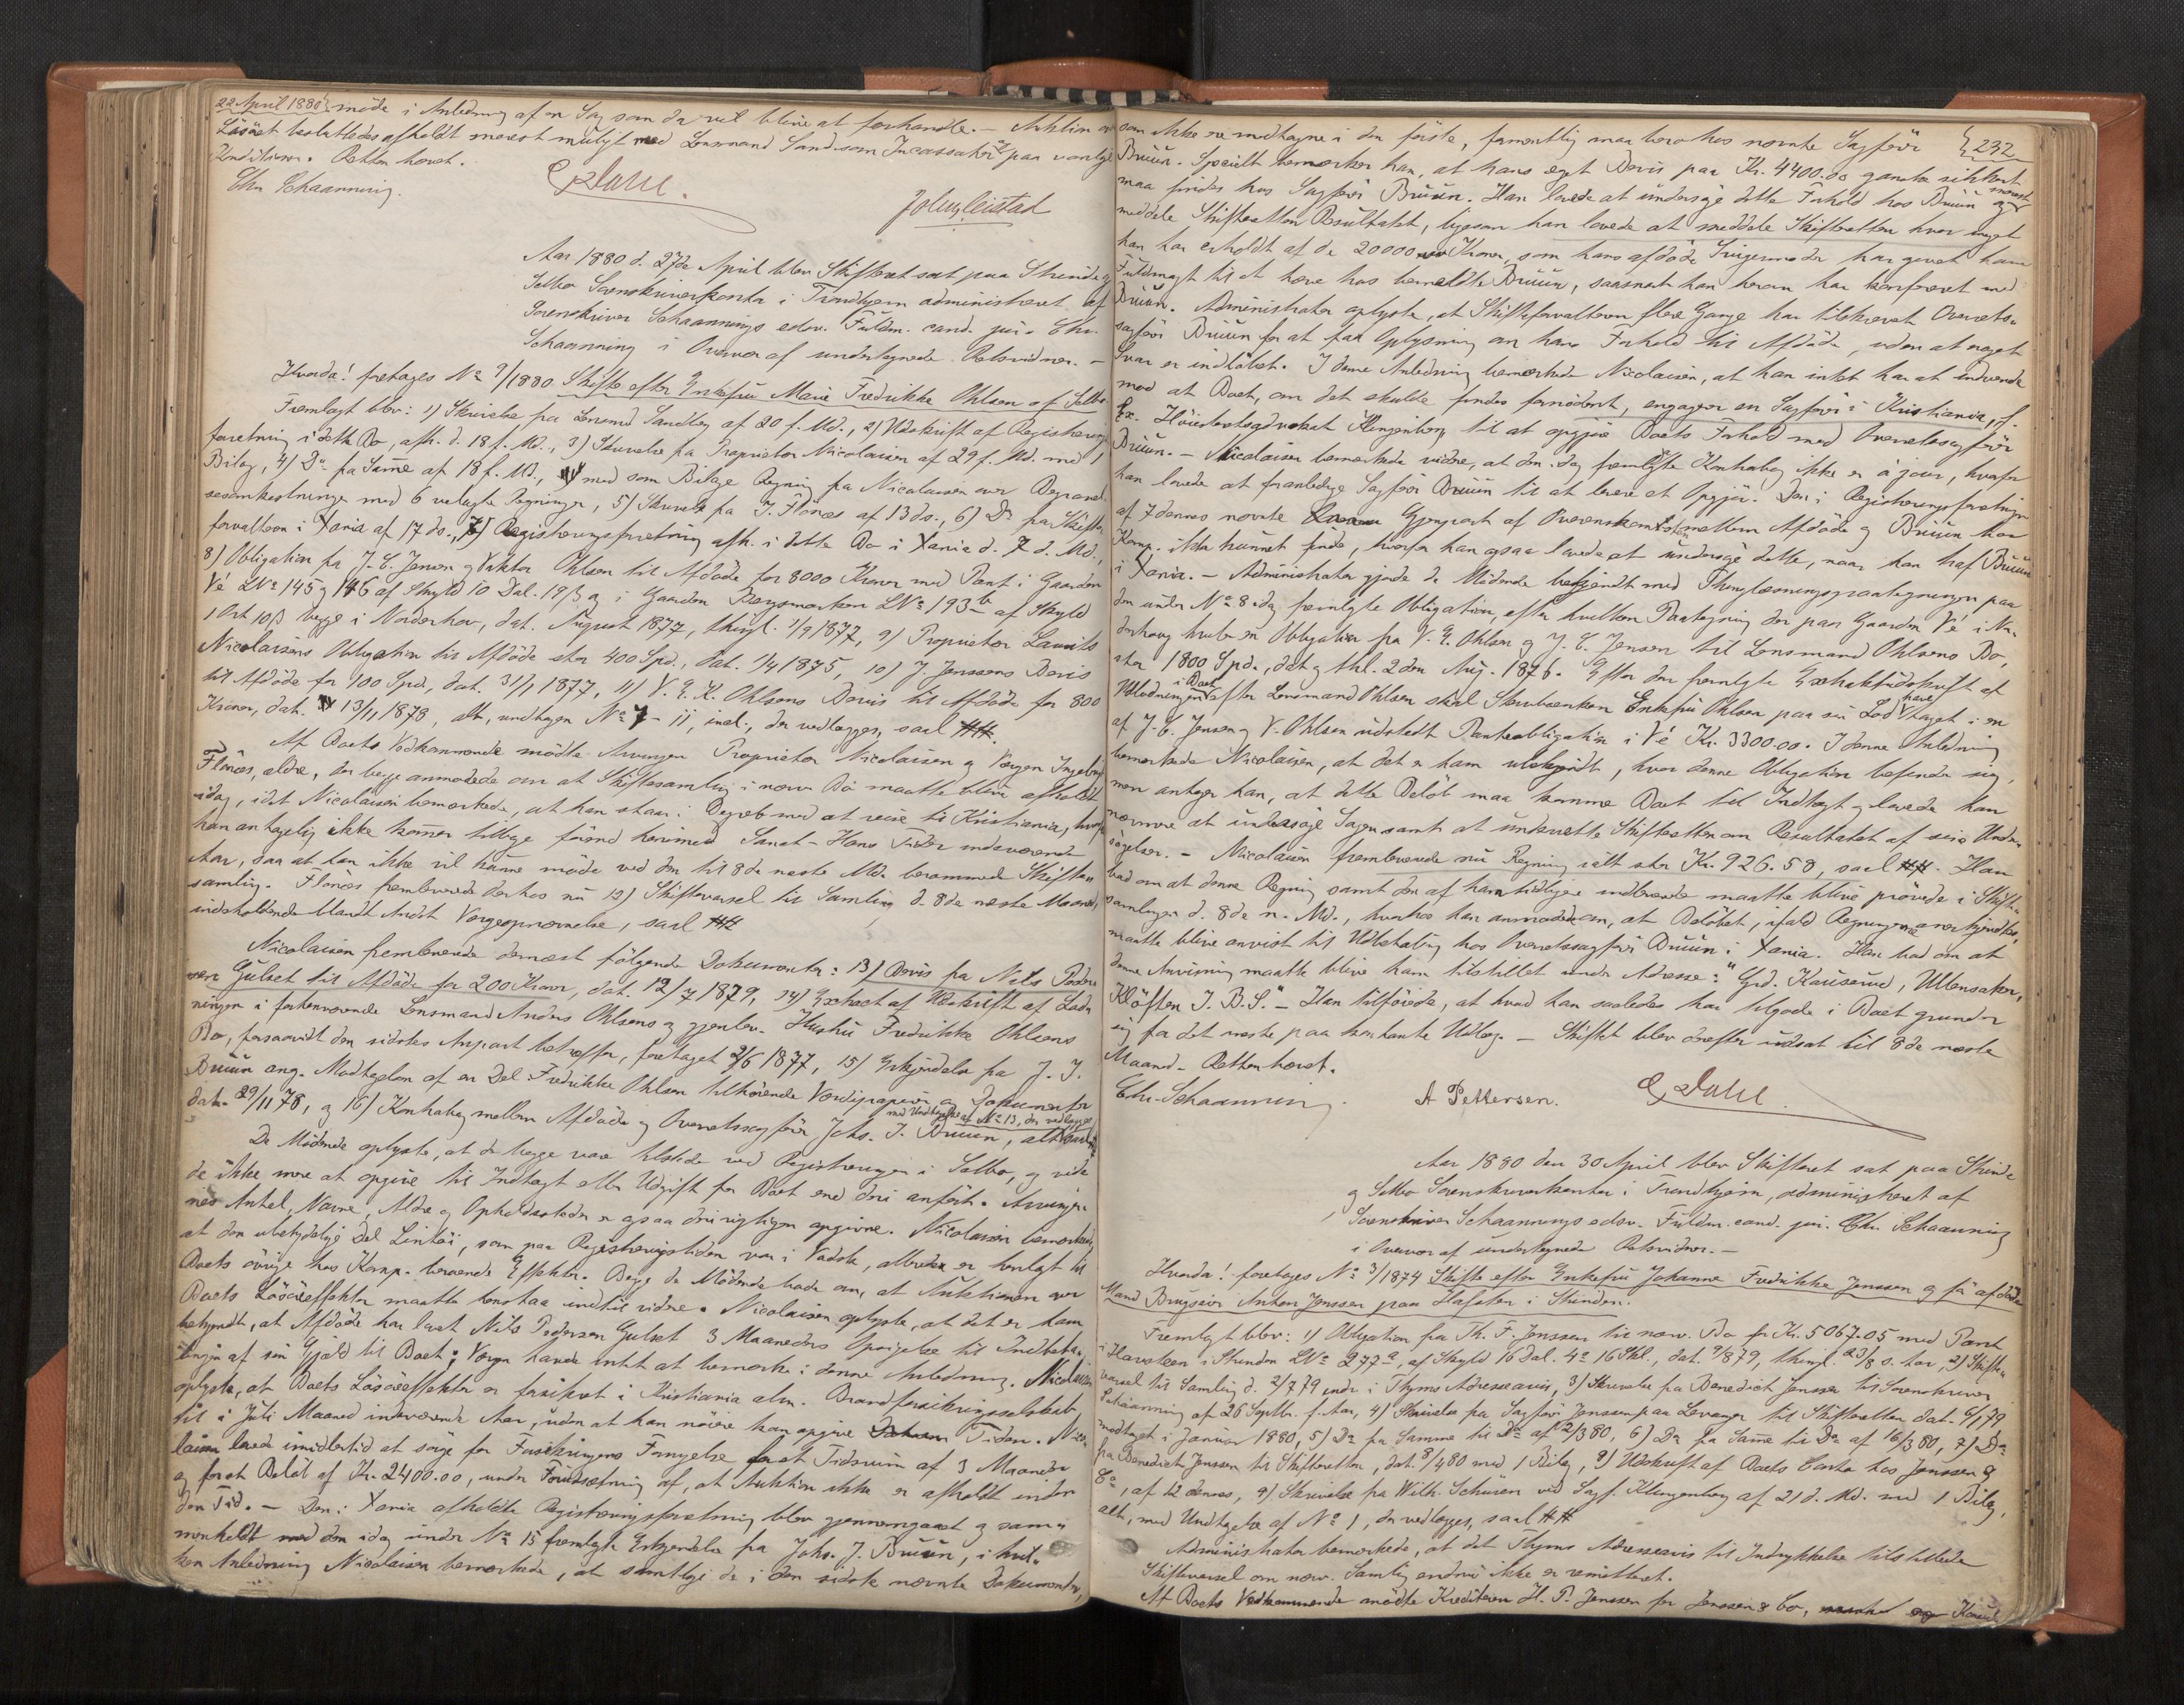 22 April 1880 møde i Anledning af en Sag som da vil blive at forhandle. - Auktion over
Løsøret besluttedes afholdt snarest muligt med Lensmand Sand som Incassator paa vanlige
Konditioner. Retten hævet.
Chr Schaanning.
E Dahl.
Johs Leistad
Aar 1880 d. 27de April blev Skifteret sat paa Strinde og
Selbo Sorenskriverkontor i Trondhjem administreret af
Sorenskriver Schaannings edsv. Fuldm. cand. jur. Chr.
Schaanning i Overvær af undertegnede Retsvidner. -
Hvorda! foretages No 9/1880 Skifte efter Enkefru Marie Fredrikke Ohlsen af Selbo.
Fremlagt blev: 1) Skrivelse fra Lensmd Sandberg af 20 f. Md., 2) Udskrift af Registrerings
forretning i dette Bo, afh. d. 18 f. Md., 3) Skrivelse fra Proprietær Nicolaisen af 29 f. Md. med 1
Bilag, 4) Do fra Samme af 18 f. Md., med som Bilage Regning fra Nicolaisen over Begravel-
sesomkostninger med 6 vedlagte Regninger, 5) Skrivelse fra I. Flønæs af 13 ds., 6) Do fra Skifte-
forvalteren i Xania af 17 ds., 7) Registreringsforretning afh. i dette Bo i Xania d. 7 d. Md.,
8) Obligation fra J. C. Jensen og Viktor Ohlsen til Afdøde for 8000 Kroner med Pant i Gaarden
Vé LNo 145 og 146 af Skyld 10 Dal. 19 β og i Gaarden Bergsmarken LNo 193b af Skyld
1 Ort 10 β begge i Norderhov, dat. August 1877, thingl. 1/9 1877, 9) Proprietær Laurits
Nicolaisens Obligation til Afdøde stor 400 Spd., dat. 1/4 1875, 10) J. Jensens Bevis
til Afdøde for 100 Spd., dat. 31/1 1877, 11) V. E. K. Ohlsens Bevis til Afdøde for 800
Kroner, dat. 13/11 1878, alt, undtagen No 7 - 11, incl., der vedlægges, saal. ##.
Af Boets Vedkommende mødte Arvingen Proprietær Nicolaisen og Værgen Ingebrigt
Flønæs, ældre, der begge anmodede om at Skiftesamling i nærv. Bo maatte blive afholdt
idag, idet Nicolaisen bemærkede, at han staar i Begreb med at reise til Kristiania, hvorfra
han antagelig ikke kommer tilbage førend henimod Sanct-Hans Tider indeværende
Aar, saa at han ikke vil kunne møde ved den til 8de næste Md. berammede Skifte-
samling. Flønæs fremleverede derhos nu 12) Skiftevarsel til Samling d. 8de næste Maaned,
indeholdende blandt Andet Værgeopnævnelse, saal. ##
Nicolaisen fremleverede dernæst følgende Dokumenter: 13) Bevis fra Nils Peder-
sen Gulset til Afdøde for 200 Kroner, dat. 12/7 1879, 14) Extract af Udskrift af Lodn
ningen i forhenværende Lensmand Anders Ohlsens og gjenlev. Hustru Fredrikke Ohlsens
Bo, forsaavidt den sidstes Anpart betræffer, foretaget 2/6 1877, 15) Erkjendelse fra J. J.
Bruun ang. Modtagelsen af en Del Fredrikke Ohlsen tilhørende Værdipapirer og Dokumenter
dat. 29/11 78, og 16) Kontrabog mellem Afdøde og Overretssagfører Johs. J. Bruun, alt med Undtagelse af No 13, der vedlægges, saal.
De Mødende oplyste, at de begge vare tilstede ved Registreringen i Selbo, og vid-
de ikke mere at opgive til Indtægt eller Udgift for Boet end deri anført. Arvinger-
nes Antal, Navne, Alder og Opholdssteder er ogsaa deri rigtigen opgivne. Nicolaisen bemærkede,
at den ubetydelige Del Lintøi, som paa Registreringstiden var i Vadsk, allerede er henlagt til
Boets øvrige hos Komp. beroende Effekter. Begge de Mødende bade om, at Auktionen over
Boets Løsøreeffekter maatte henstaa indtil videre. Nicolaisen oplyste, at det er ham
bekjendt, at Afdøde har lovet Nils Pedersen Gulset 3 Maaneders Opsigelse til Indbeta-
lingen af sin Gjæld til Boet; Værgen havde intet at bemærke i denne Anledning. Nicolaisen
oplyste, at Boets Løsøreeffekter er forsikret i Kristiania alm. Brandforsikringsselskab
til i Juli Maaned indeværende Aar, uden at han nøiere kan opgive Tiden. Nico-
laisen lovede imidlertid at sørge for Forsikringens Fornyelse for et Tidsrum af 3 Maaneder
og for et Beløb af Kr. 2400.00, under Forudsætning af, at Auktion ikke er afholdt inden
den Tid. - Den i Xania afholdte Registreringsforretning blev gjennemgaaet og sam-
menholdt med den idag under No 15 fremlagte Erkjendelse fra Johs. J. Bruun, i hvil-
ken Anledning Nicolaisen bemærkede, at samtlige de i den sidste nævnte Dokumenter,
232
som ikke ere medtagne i den første, formentlig maa bero hos nævnte Sagfører
Bruun. Specielt bemærker han, at hans eget Bevis paa Kr. 4400.00 ganske sikkert
maa findes hos Sagfører Bruun. Han lovede at undersøge dette Forhold hos Bruun og snarest
meddele Skifteretten Resultatet, ligesom han lovede at meddele Skifteretten hvor meget
han har erholdt af de 20000 Kroner, som hans afdøde Svigermoder har givet ham
Fuldmagt til at hæve hos bemeldte Bruun, saasnart han herom har konfereret med
Bruun. Administrator oplyste, at Skifteforvalteren flere Gange har tilskrevet Overrets-
sagfører Bruun for at faa Oplysning om hans Forhold til Afdøde, uden at noget
Svar er indløbet. I denne Anledning bemærkede Nicolaisen, at han intet har at indvende
mod at Boet, om det skulde findes fornødent, engagerer en Sagfører i Kristiania, f.
Ex. Høiesteretsadvokat Klingenberg til at opgjøre Boets Forhold med Overretssagfører
Bruun. - Nicolaisen bemærkede videre, at den idag fremlagte Kontrabog ikke er à jour, hvorfor
han lovede at foranledige Sagfører Bruun til at levere et Opgjør. Den i Registreringsforretningen
af 7 dennes nævnte Gjenpart af Overenskomsten mellem Afdøde og Bruun har
Komp. ikke kunnet finde, hvorfor han ogsaa lovede at undersøge dette, naar han traf Bruun
i Xania. - Administrator gjorde de Mødende bekjendt med Thinglæsningspaategningen paa
den under No 8 idag fremlagte Obligation, efter hvilken Paategning der paa Gaarden Vé i No-
derhoug hviler en Obligation fra V. E. Ohlsen og J. C. Jensen til Lensmand Ohlsens Bo,
stor 1800 Spd., dat. og thl. 2den Aug. 1876. Efter den fremlagte Extraktudskrift af
Udlodningen i Boet efter Lensmand Ohlsen skal Skrubsenken Enkefru Ohlsen paa sin Lod have taget i en
af J. C. Jensen og V. Ohlsen udstedt Panteobligation i Vé Kr. 3300.00. I denne Anledning
bemærkede Nicolaisen, at det er ham ubekjendt, hvor denne Obligation befinder sig,
men antager han, at dette Beløb maa komme Boet til Indtægt og lovede han
nærmere at undersøge Sagen samt at underrette Skifteretten om Resultatet af sine Under-
søgelser. - Nicolaisen fremleverede nu Regning ialt stor Kr. 926.58, saal. ##. Han
bad om at denne Regning samt den af ham tidligere indleverede maatte blive prøvede i Skifte-
samlingen d. 8de n. Md., hvorhos han anmodede om, at Beløbet, ifald Regningerne anerkjendtes,
maatte blive anvist til Udbetaling hos Overretssagfører Bruun i Xania. Han bad om at
denne Anvisning maatte blive ham tilstillet under Adresse: "Grd. Kauserud, Ullensaker,
Kløften J. B. S." - Han tilføiede, at hvad han saaledes har tilgode i Boet grunder
sig for det meste paa kontante Udlæg. - Skiftet blev derefter udsat til 8de næste
Maaned. Retten hævet.
Chr. Schaanning.
A Pettersen.
E Dahl.
Aar 1880 den 30 April blev Skifteret sat paa Strinde
og Selbo Sorenskriverkontor i Trondhjem, administreret af
Sorenskriver Schaannings edsv. Fuldm. cand. jur. Chr. Schaanning
i Overvær af undertegnede Retsvidner. -
Hvorda! foretages No 3/1874 Skifte efter Enkefru Johanne Fredrikke Jenssen og før afdøde
Mand Brugseier Anton Jenssen paa Hafsten i Strinden.
Fremlagt blev: 1) Obligation fra Th. F. Jenssen til nærv. Bo for Kr. 5067.05 med Pant
i Havsteen i Strinden LNo 277a, af Skyld 16 Dal. 4 Ort 16 Skl., dat. 9/8 79, thingl. 23/8 s. Aar, 2) Skifte-
varsel til Samling d. 2/7 79 indr. i Thjms Adresseavis, 3) Skrivelse fra Benedict Jenssen til Sorenskriver
Schaanning af 26 Septbr. f. Aar, 4) Skrivelse fra Sagfører Jenssen paa Levanger til Skifteretten dat. 6/1 79
modtaget i Januar 1880, 5) Do fra Samme til Do af 12/3 80, 6) Do fra Samme til Do af 16/3 80, 7) Do
fra Benedict Jenssen til Skifteretten, dat. 8/4 80 med 1 Bilag, 8) Udskrift af Boets Conto hos Jenssen &
Co, af 12 dennes, 9) Skrivelse fra Wilh. Schüren ved Sagf. Klingenberg af 21 d. Md. med 1 Bilag,
alt, med Undtagelse af No 1, der vedlægges, saal. ##
Administrator bemærkede, at det Thjms Adresseavis til Indrykkelse tilstillede
Skiftevarsel om nærv. Samling endnu ikke er remitteret.
Af Boets Vedkommende mødte Kreditoren H. P. Jenssen for Jenssen & Co, Konsul